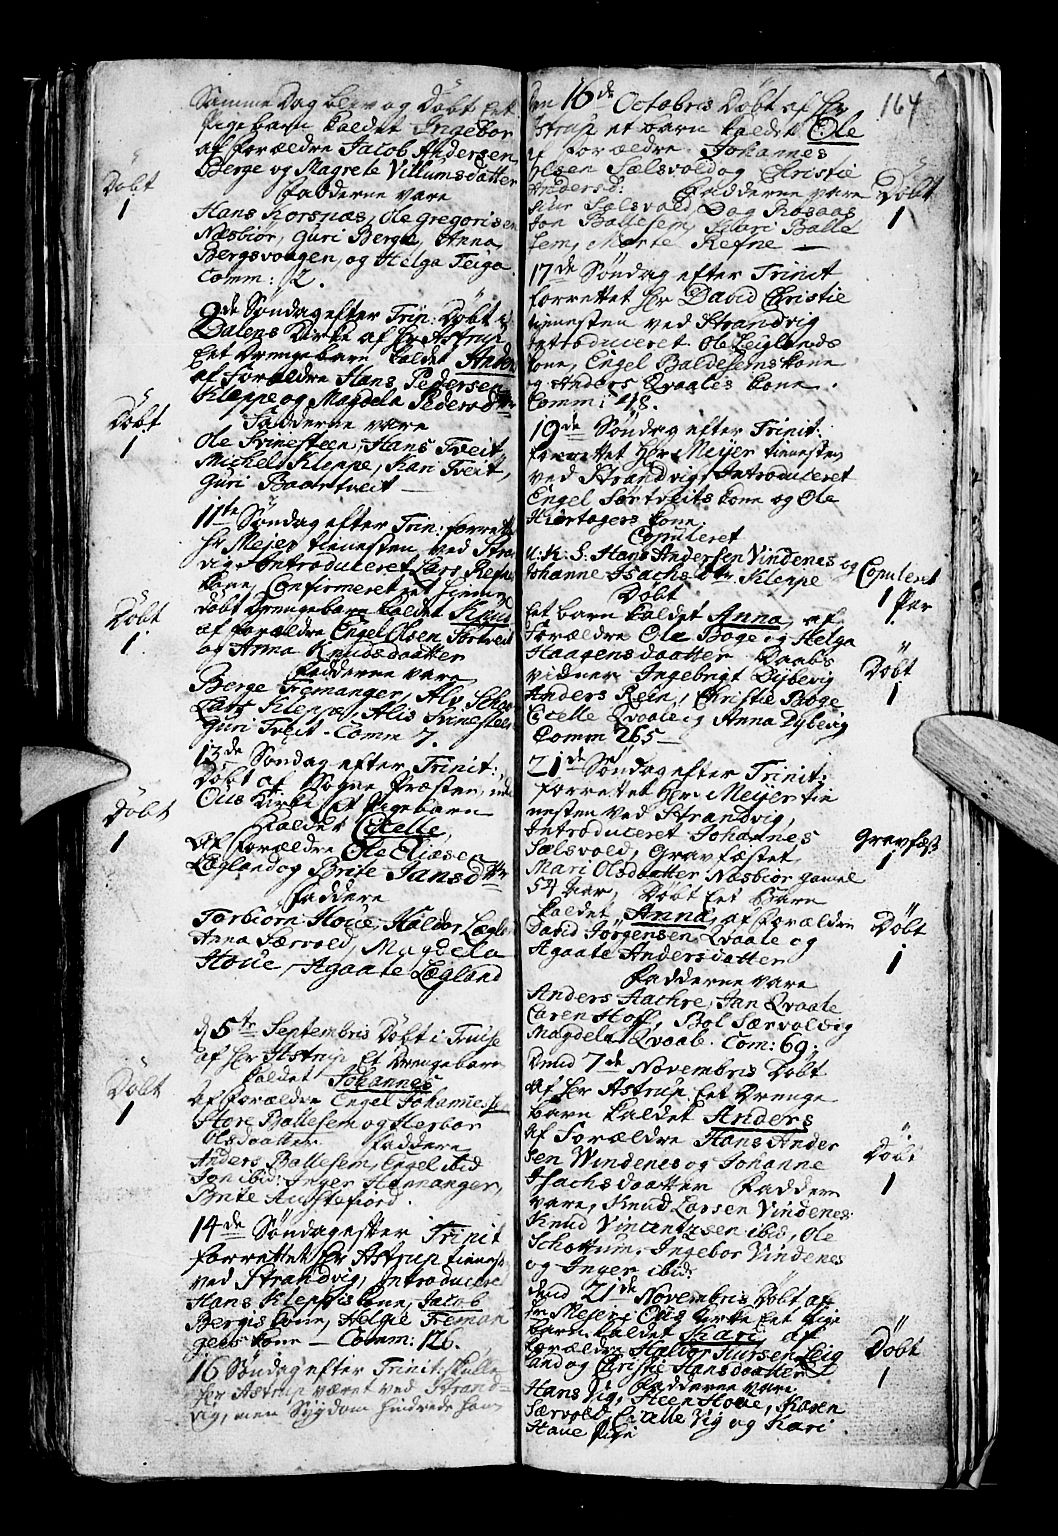 Samme Dag blev og Döbt Eet
Pigebarn kaldet Ingebor
af forældre Jacob Andersen
Berge og Magrete Villumsdatter
Döbt
1
Fadderne vare
Hans Korsnæs, Ole Gregorisen
Næsbiör, Guri Berge, Anna
Bergsvogen, og Helga Teiga
Comm: 12.
8de Söndag efter Trin: Döbt i
Dalens Kirke af Hr Astrup
Eet Drengebarn kaldet Anders
af Forældre Hans Pedersen
Kleppe og Magdela Pedersdttr
Döbt
1
Fadderne vare
Ole Trinesteen, Hans Tveit,
Michel Kleppe, Kari Tveit,
Guri Baartveit —
11te Söndag efter Trin: forrettet
Hr Mejer tienesten ved Stran
vig, Introduceret Lars Refne
kone, Confirmeret et hjemme
döbt Drengebarn kaldet Knud
Döbt
1.
af forældre Engel Olsen Sortveit
og Anna Knudsdaatter
Fadderne vare
Berge Fremanger, Alv
Lars Kleppe, Alis Trinesteen
Guri Tveit. Comm 7.
13de Söndag efter Trinit:
Döbt af Sogne Præsten, ude
Ous Kirke et Pigebarn
Döbt
1
kaldet Citelle,
Af Forældre Ole Eliasen
Lægland og Brite Jansdttr
Faddere
Torbiörn Houe, Haldor Lægland
Anna Særvold, Magdela
Houe, Agaate Lægland
d 5te Septembris Döbt i Fruise
af Hr Astrup Et Drengebarn
kaldet Johannes
Döbt
1
Af Forældre Engel Johannessen
Hore Ballesem og Herbor
Olsdaatter Faddere
Anders Ballesem, Engel ibid
Jon ibid: Inger Hennanger,
Brite Austefiord.
14de Söndag efter Trinit
forrettet Hr Astrup tienesten
ved Strandvig, Introduceret
Hans Kleppis kone, Jacob
Bergis kone, Helgie Freman
gers kone — Comm: 126.
16 Söndag efter Trinit. skulle
Hr Astrup været ved Strand-
vig, men Sygdom hindrede ham
164
den 16de Octobris Döbt af Hr
Astrup et barn kaldet Ole
af forældre Johannes
Olsen Sælsvold og Christie
Andersd: Fadderne vare
Döbt
1
Siur Sælsvold, Dag Rosaas
Jon Ballesem, Kari Balle
sem, Marte Refne —
17de Söndag efter Trinit
forrettet Hr David Christie
tienesten ved Strandvig
Introduceret Ole Leiglands
kone, Engel Baldesems kone
og Anders Qvales kone.
Comm: 48.
19de Söndag efter Trinit:
forrettet Hr Meyer tienesten
ved Strandvig, Introduceret
Engel Sortveits kone og Ole
Hiortagers kone,
Copuleret
u: K: S: Hans Andersen Vindenes og
Johanne Isachsdttr Kleppe
Copuleret
1 Par
Döbt
Eet barn kaldet Anna, af
Forældre Ole Boge og Helga
Haagensdaatter Daabs
vidner Ingebrigt Dybevig
Anders Rein, Christie Boge
Citelle Qvale og Anna Dybevig
Comm 265 —
Döbt
1
21de Söndag efter Trinit:
forrettet Hr: Meyer tie
nesten ved Strandvig,
Introduceret Johannes
Sælsvold, Gravfæstet
Mari Olsdaatter Næsbiör gamel
54 Aar, Döbt Eet Barn
Gravfæst
1
kaldet Anna, af Forældre
David Jörgensen Qvaale og
Agaate Andersdaatter
Döbt
1
Fadderne vare
Anders Aachre, Jan Qvaale
Caren Hoff, Bol Særvoldvig
Magdela Qvaale. Com: 69.
Dend 7de Novembris Döbt
Af Hr Astrup Eet Drenge
barn kaldet Anders
af Forældre Hans Ander
sen Windenes og Johanne
Isachsdaatter Faddern
vare, Knud Larsen Vindenes
Knud Vincentzsen ibid, Ole
Schottum, Ingebor Vindenes
og Inger ibid:
Döbt
1
dend 21de Novembris Döbt af
Hr Meyer i Ous Kirke Eet Pige
barn kaldet Kari af
Forældre Haldor Siursen Leig
land og Christie Hansdaatter
Döbt
1
Fadderne vare
Hans Vig, Steen Houe, Karen
Særvold, Citelle Vig og Kari
Houe Pige